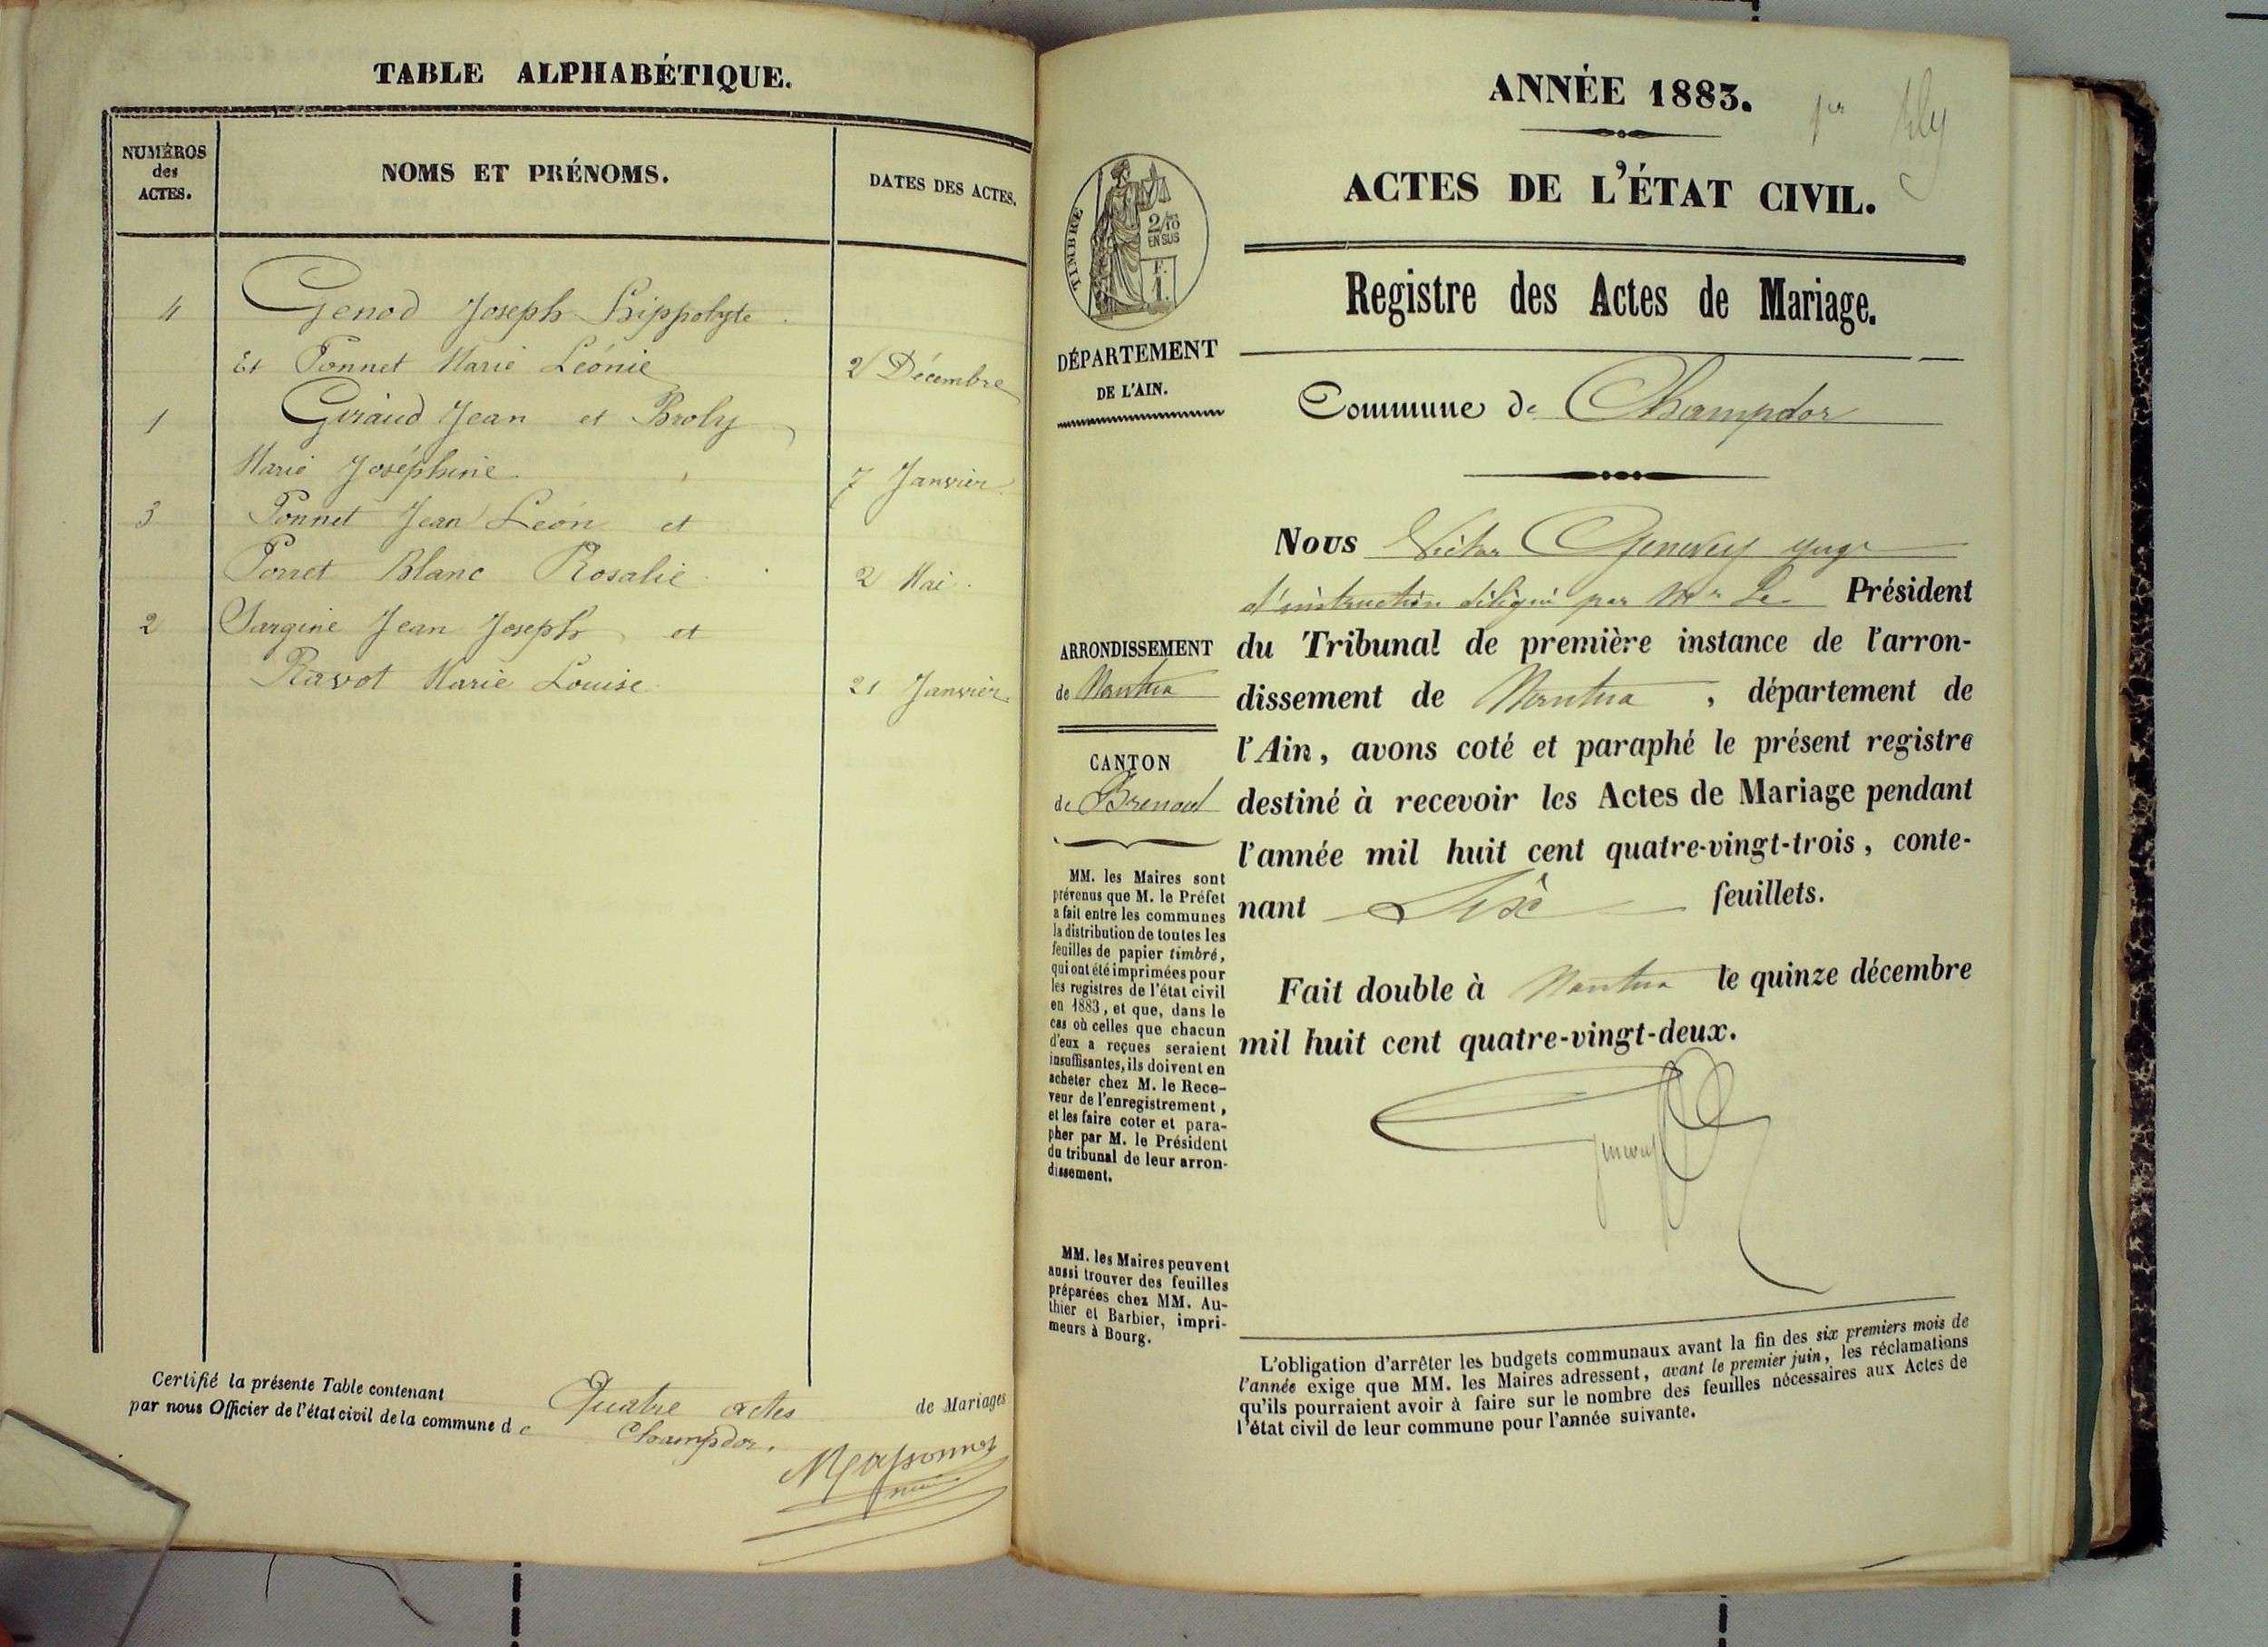 TABLE ALPHABÉTIQUE.
NUMÉROS
des
ACTES.
NOMS ET PRÉNOMS.
DATES DES ACTES.
4 Genod Joseph Hippolyte
Et Ponnet Marie Léonie 2 Décembre
1 Giraud Jean et Broly
Marie Joséphine 7 Janvier
3 Ponnet Jean Léon et
Porret Blanc Rosalie 2 Mai
2 Sargine Jean Joseph et
Ravot Marie Louise 21 Janvier.
Certifié la présente Table contenant Quatre actes de Mariages
par nous Officier de l'état civil de la commune de Champdor.
ANNÉE 1883.
1er
ACTES DE L'ÉTAT CIVIL.
TIMBRE
2/10
EN SUS
F.
1.
Registre des Actes de Mariage.
DÉPARTEMENT
DE L'AIN.
Commune de Champdor
Nous Victor Genevey juge
d'instruction délégué par Mr Le Président
du Tribunal de première instance de l'arron-
dissement de Nantua, département de
l'Ain, avons coté et paraphé le présent registre
destiné à recevoir les Actes de Mariage pendant
l'année mil huit cent quatre-vingt-trois, conte-
nant Six feuillets.
Fait double à Nantua le quinze décembre
mil huit cent quatre-vingt-deux.
Genevey
ARRONDISSEMENT
de Nantua
CANTON
de Brenod
MM. les Maires sont
prévenus que M. le Préfet
a fait entre les communes
la distribution de toutes les
feuilles de papier timbré,
qui ont été imprimées pour
les registres de l'état civil
en 1883, et que, dans le
cas où celles que chacun
d'eux a reçues seraient
insuffisantes, ils doivent en
acheter chez M. le Rece-
veur de l'enregistrement,
et les faire coter et para-
pher par M. le Président
du tribunal de leur arron-
dissement.
MM. les Maires peuvent
aussi trouver des feuilles
préparées chez MM. Au-
thier et Barbier, impri-
meurs à Bourg.
L'obligation d'arrêter les budgets communaux avant la fin des six premiers mois de
l'année exige que MM. les Maires adressent, avant le premier juin, les réclamations
qu'ils pourraient avoir à faire sur le nombre des feuilles nécessaires aux Actes de
l'état civil de leur commune pour l'année suivante.